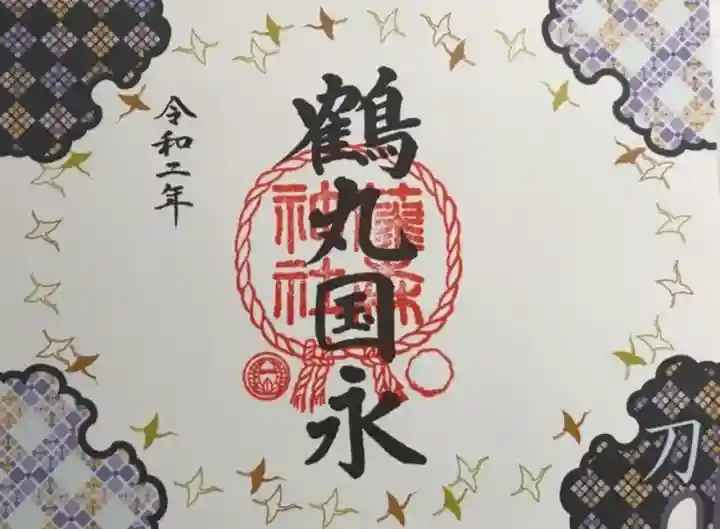 鶴丸国永
藤森神社
令和二年
刀